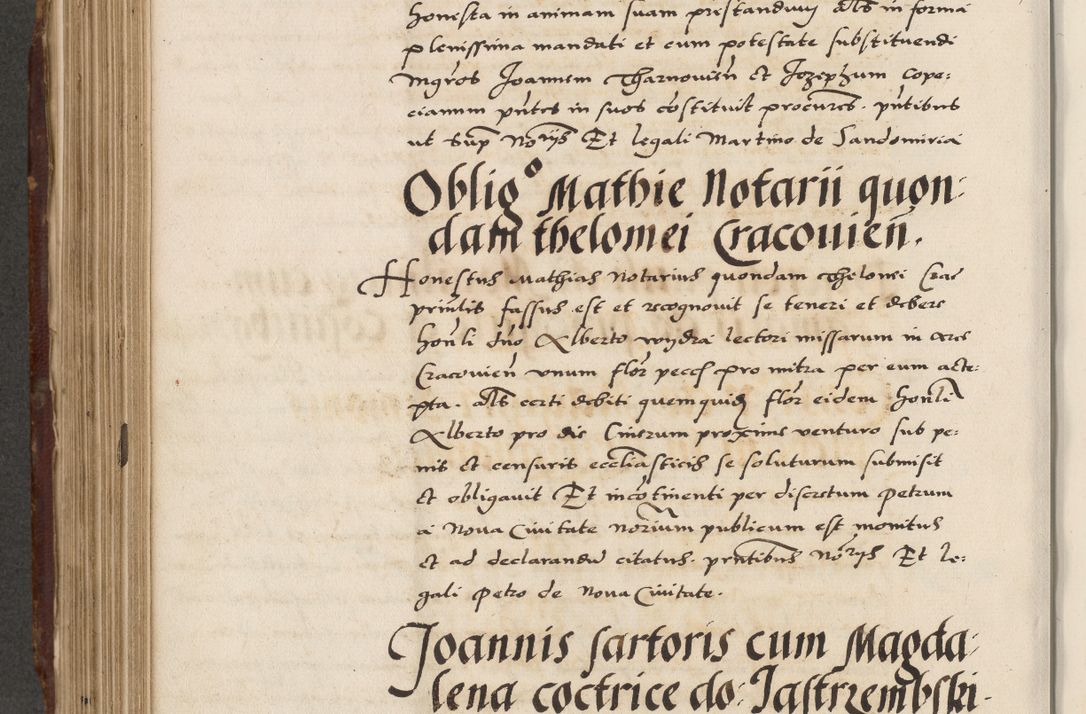 honesta in animam suam prestandum als in forma
plenissima mandati et cum potestate substituendi
mgros Joannem Tharnouien et Jozephum cope:
cianum pntes in suos costituit procures. pntibus
ut sup Notijs Et legali Martino de Sandomiria
Oblig° Mathie Notarii quon:
dam thelomei Cracouien.
Honestus Mathias Notarius quondam Thelonei Crac
prinlit fassus est et recognouit se teneri et debere
honli dno Alberto wydra lectori missarum in arce
Cracouien unum flor pecc pro mitra per eum acce:
pta. als certi debiti quemquidem flor eidem honli
Alberto pro die Cinerum proxime venturo sub pe:
nis et censuris eccliasticis se soluturum submisit
et obligauit Et incotinenti per discretum Petrum
a Noua Ciuitate norium publicum est monitus
et ad declarandu citatus. prntibus Norijs Et le:
gali Petro de Noua Ciuitate.
Joannis sartoris cum Magda:
lena coctrice do: Jastrzembski.